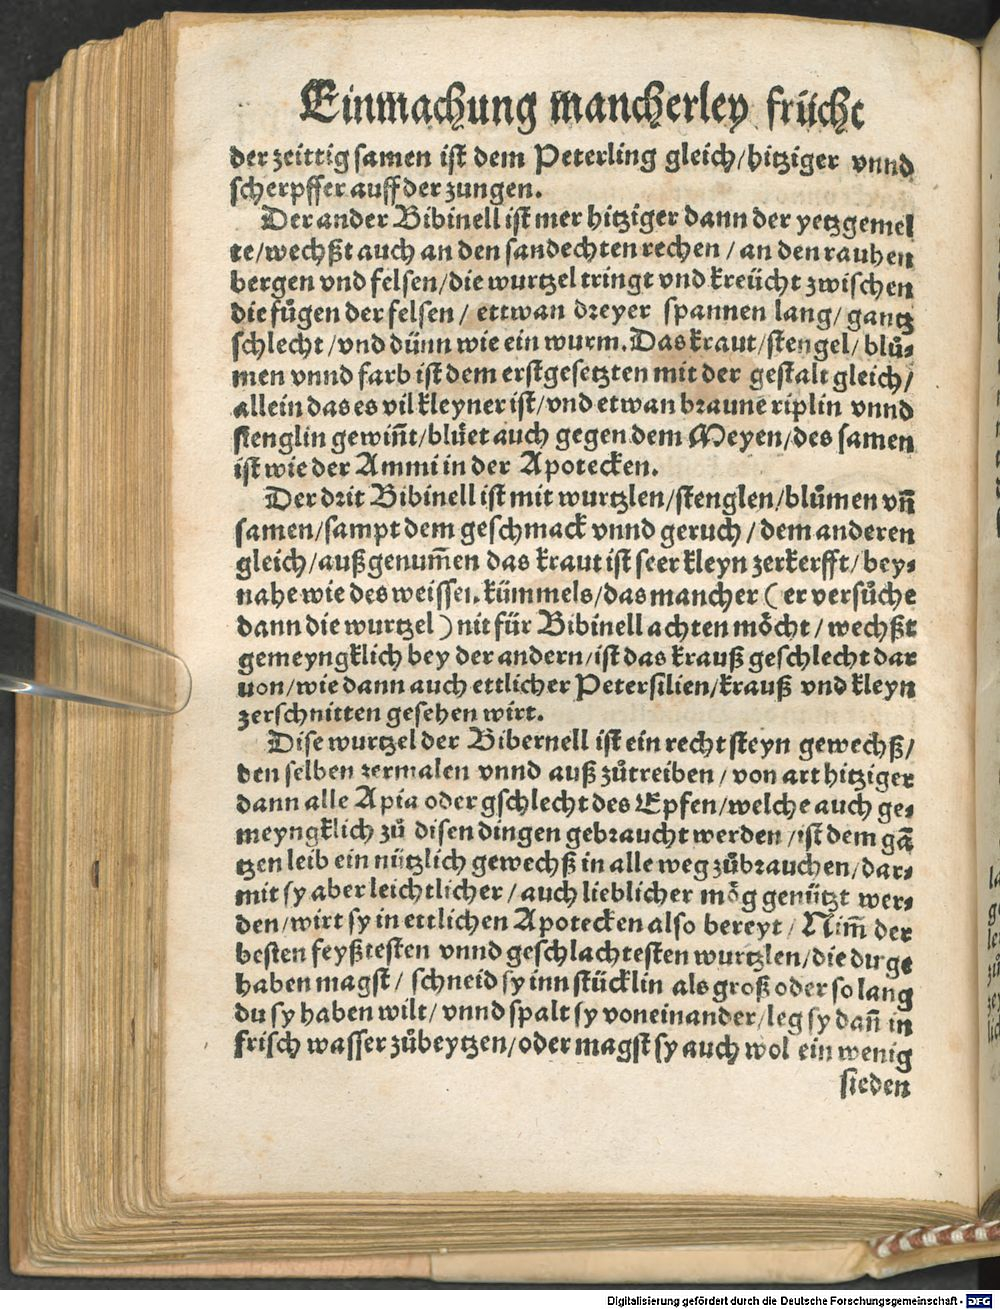 Einmachung mancherley frücht
der zeittig samen ist dem Peterling gleich/hitziger vnnd
scherpffer auff der zungen.
Der ander Bibinell ist mer hitziger dann der yetzgemel
te/wechßt auch an den sandechten rechen / an den rauhen
bergen vnd felsen/die wurtzel tringt vnd kreücht zwischen
die fuͤgen der felsen / ettwan dreyer spannen lang/ gantz
schlecht/vnd dünn wie ein wurm. Das kraut/stengel/ bluͤ⸗
men vnnd farb ist dem erstgesetzten mit der gestalt gleich/
allein das es vil kleyner ist/vnd etwan braune riplin vnnd
stenglin gewiñt/bluͤet auch gegen dem Meyen/des samen
ist wie der Ammi in der Apotecken.
Der drit Bibinell ist mit wurtzlen/stenglen/bluͤmen vñ
samen/sampt dem geschmack vnnd geruch / dem anderen
gleich/außgenum̃en das kraut ist seer kleyn zerkerfft/bey⸗
nahe wie des weissen kümmels/das mancher ( er versuͤche
dann die wurtzel ) nit für Bibinell achten moͤcht / wechßt
gemeyngklich bey der andern/ist das krauß geschlecht dar
uon/wie dann auch ettlicher Petersilien/krauß vnd kleyn
zerschnitten gesehen wirt.
Dise wurtzel der Bibernell ist ein recht steyn gewechß/
den selben zermalen vnnd auß zuͦtreiben / von art hitziger
dann alle Apia oder gschlecht des Epfen/welche auch ge⸗
meyngklich zuͦ disen dingen gebraucht werden /ist dem gã
tzen leib ein nützlich gewechß in alle weg zuͦbrauchen/dar⸗
mit sy aber leichtlicher / auch lieblicher moͤg genützt wer⸗
den/wirt sy in ettlichen Apotecken also bereyt / Nim̃ der
besten feyßtesten vnnd geschlachtesten wurtzlen/die du ge
haben magst / schneid sy inn stücklin als groß oder so lang
du sy haben wilt/ vnnd spalt sy voneinander/leg sy dañ in
frisch wasser zuͦbeytzen/oder magst sy auch wol ein wenig
sieden
Digitalisierung gefördert durch die Deutsche Forschungsgemeinschaft - DFG